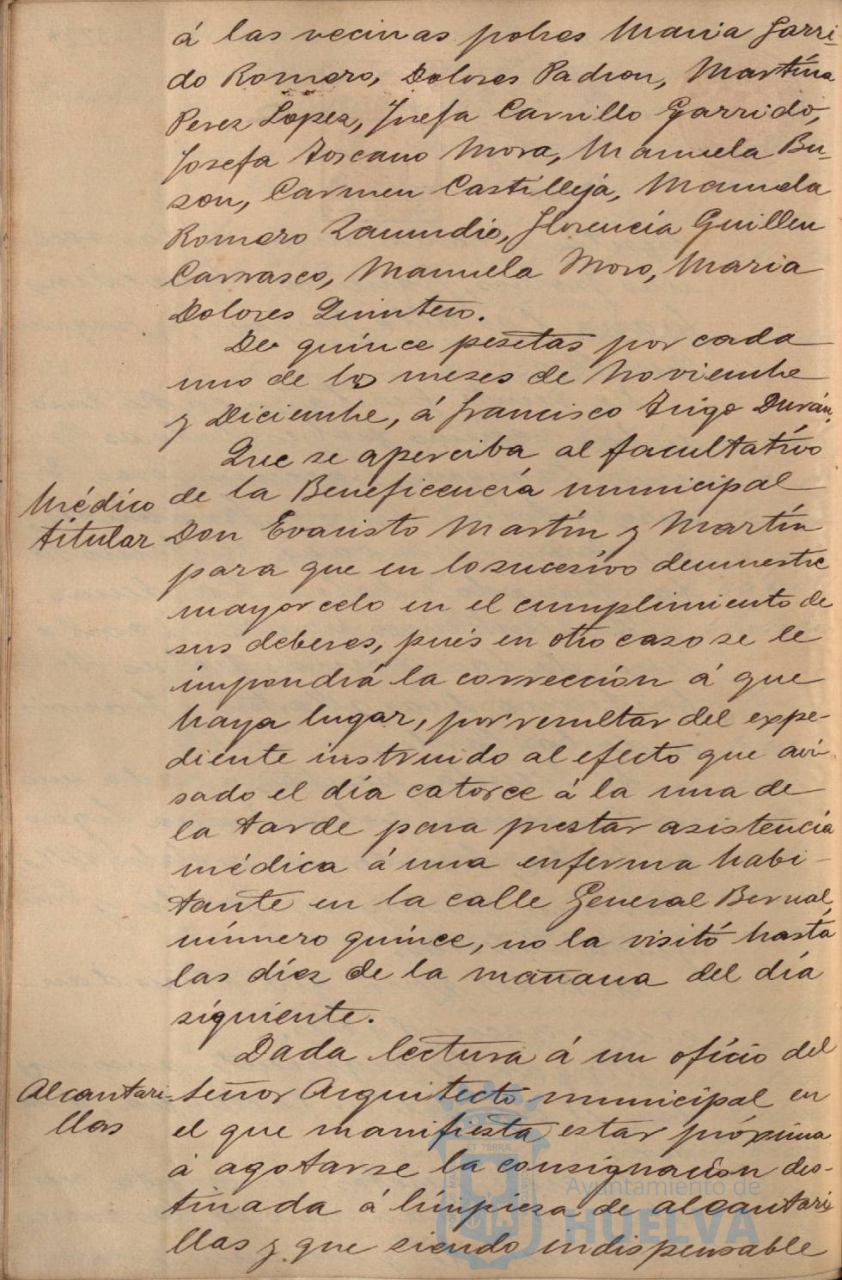 á las vecinas pobres María Garri-
do Romero, Dolores Padron, Martína
Perez Lopez, Josefa Carrillo Garrido,
Josefa Toscano Mora, Manuela Bu-
son, Carmen Castilleja, Manuela
Romero Zamudio, Florencia Guillen
Carrasco, Manuela Moro, María
Dolores Quintero.
De quince pesetas por cada
uno de los meses de Noviembre
y Diciembre, á Francisco Trigo Durán.
Que se aperciba al facultativo
Médico
titular
de la Beneficencia municipal
Don Evaristo Martín y Martín
para que en lo sucesivo demuestre
mayor celo en el cumplimiento de
sus deberes, pues en otro caso se le
impondrá la corrección á que
haya lugar, por resultar del expe-
diente instruido al efecto que avi-
sado el día catorce á la una de
la tarde para prestar asistencia
médica á una enferma habi-
tante en la calle General Bernal,
número quince, no la visitó hasta
las diez de la mañana del día
siguiente.
Dada lectura á un oficio del
Alcantari-
llas
señor Arquitecto municipal en
el que manifiesta estar próxima
á agotarse la consignación des-
tinada á limpieza de alcantari-
llas y que siendo indispensable
Ayuntamiento de
HUELVA